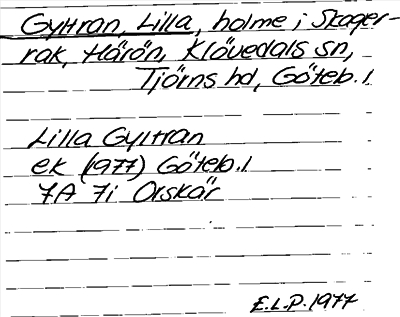 Gyltran, Lilla, holme i Skager-
rak, Härön, Klövedals sn,
Tjörns hd, Göteb. l.
Lilla Gyltran
ek (1977) Göteb. l
7A 7i Orskär
E.L.P. 1977